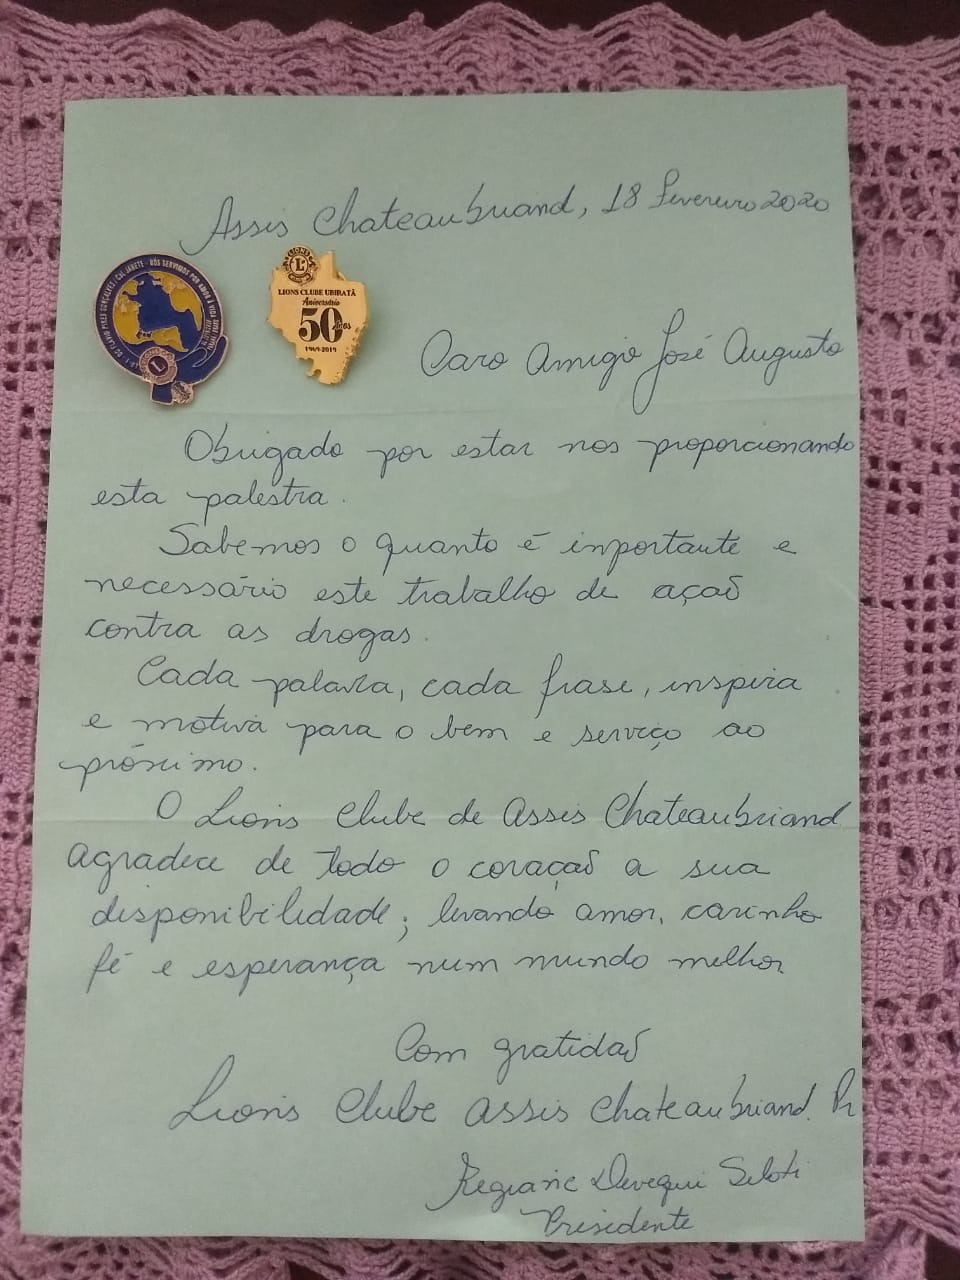 Assis Chateaubriand, 18 Fevereiro 2020
DG FLAVIO PIRES GONÇALVES / CAL JANETE - NÓS SERVIMOS POR AMOR À VIDA
LIONS
L
LIONS CLUBE UBIRATÃ
Aniversário
50 Anos
1969-2019
Caro Amigo José Augusto
Obrigado por estar nos proporcionando
esta palestra.
Sabemos o quanto é importante e
necessário este trabalho de ação
contra as drogas.
Cada palavra, cada frase, inspira
e motiva para o bem e serviço ao
próximo.
O Lions Clube de Assis Chateaubriand
agradece de todo o coração a sua
disponibilidade; levando amor, carinho
fé e esperança num mundo melhor
Com gratidão
Lions Clube Assis Chateaubriand. Pr
Presidente